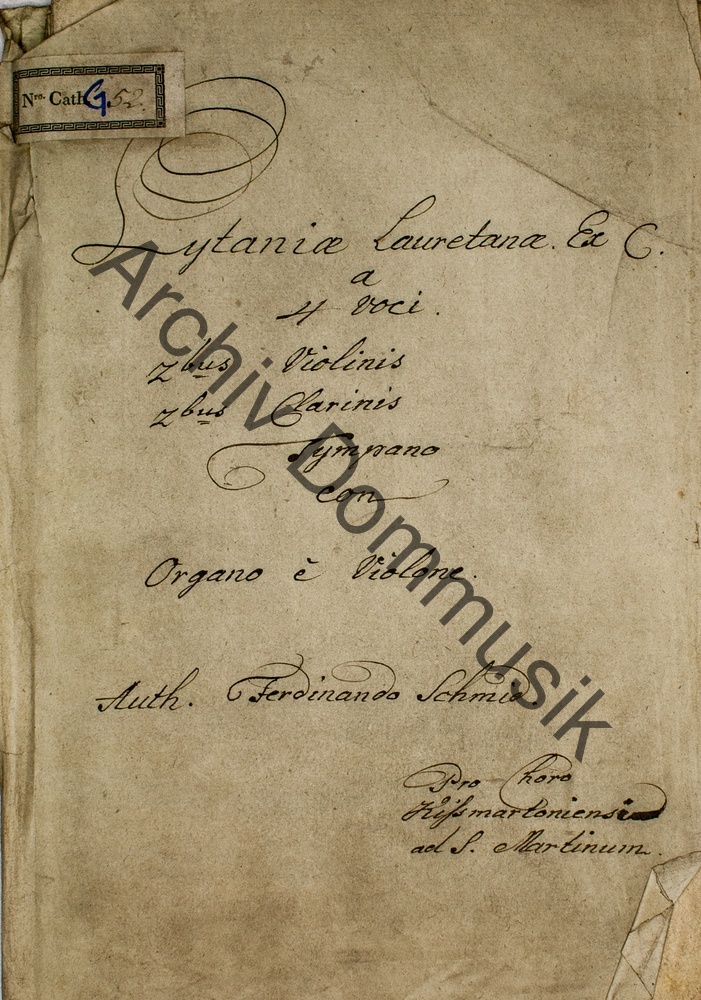 Nro. Cath. G. 52.
Lytaniæ Lauretanæ. Ex C.
a
4 Voci.
2bus Violinis
2bus Clarinis
Tympano
con
Organo è Violone.
Auth. Ferdinando Schmid.
Pro Choro
Kißmartoniensi
ad S. Martinum.
Archiv Dommusik